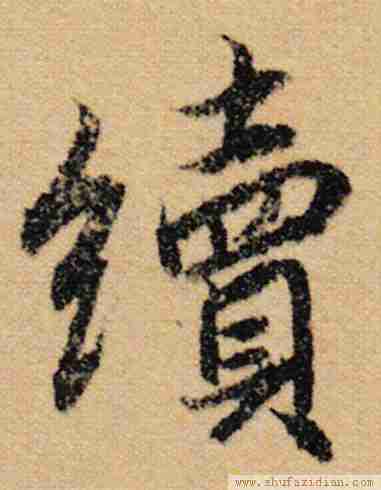 續
www.shufazidian.com